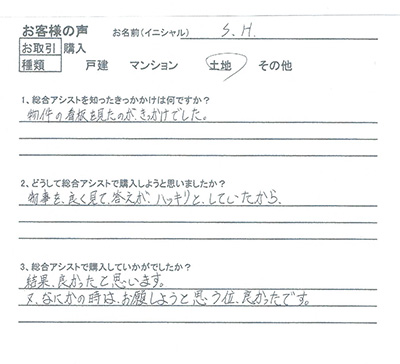 お客様の声 お名前(イニシャル) S.H.
お取引 購入
種類 戸建 マンション 土地 その他
1、総合アシストを知ったきっかかけは何ですか?
物件の看板を見たのがきっかけでした。
2、どうして総合アシストで購入しようと思いましたか?
物事を、良く見て、答えが、ハッキリと、していたから、
3、総合アシストで購入していかがでしたか?
結果、良かったと思います。
又、なにかの時は、お願しようと思う位、良かったです。